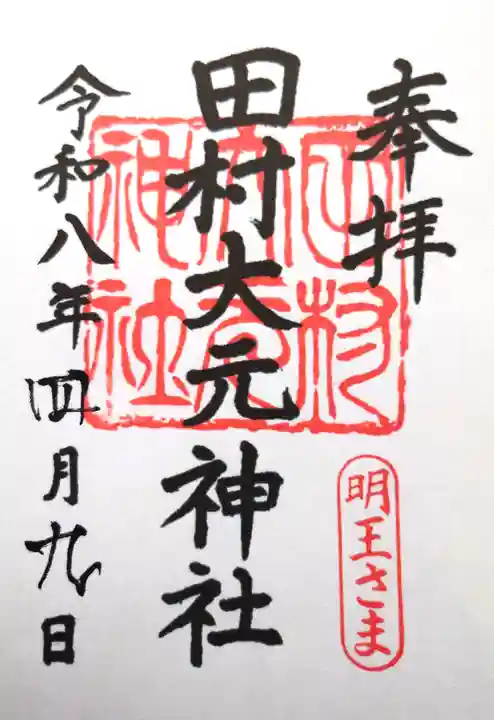 奉拝
明王さま
田村大元神社
田村大元神社
令和八年四月九日